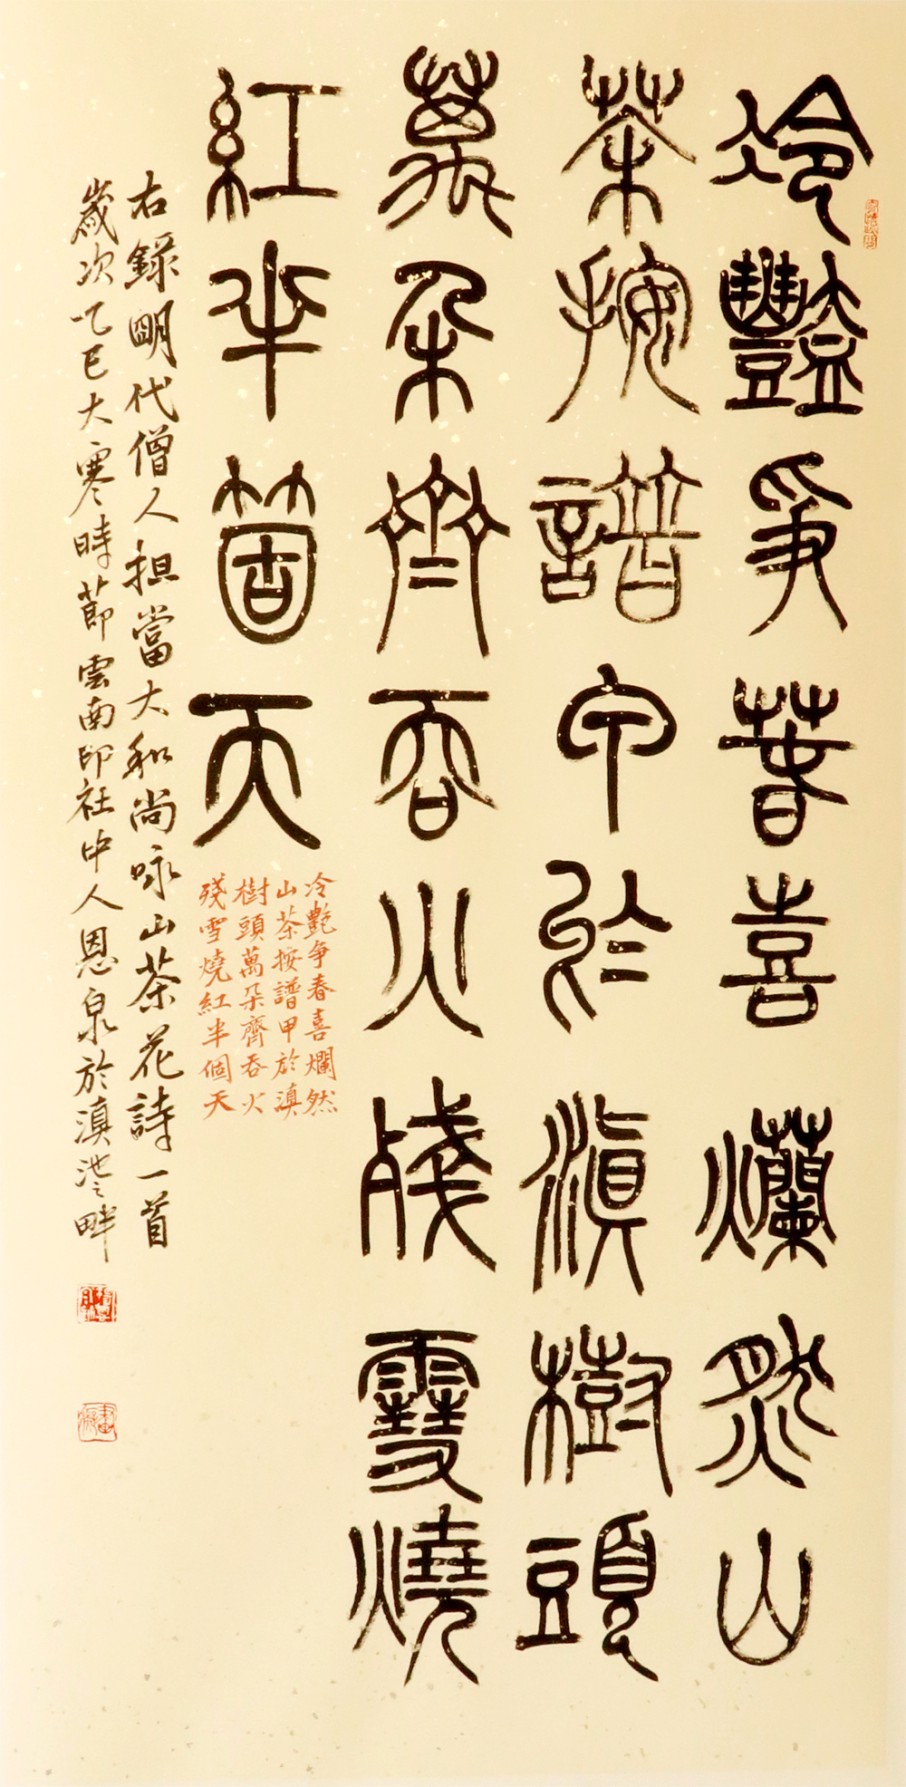 冷豔爭春喜爛然山
茶按譜甲於滇樹頭
萬朵齊吞火殘雪燒
紅半箇天
冷艷爭春喜爛然
山茶按譜甲於滇
樹頭萬朵齊吞火
殘雪燒紅半個天
右錄明代僧人担當大和尚咏山茶花詩一首
歲次乙巳大寒時節雲南印社中人恩泉於滇池畔